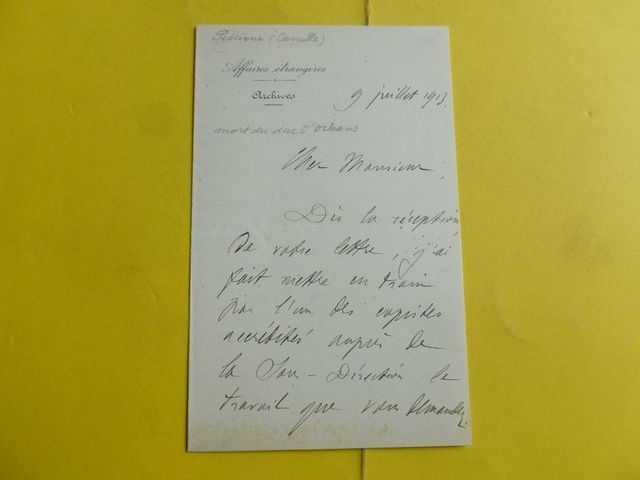 Affaires étrangères
Archives
9 juillet 1913.
mort du duc d'Orléans
Cher Monsieur,
Dès la réception
de votre lettre, j'ai
fait mettre en train
par l'un des copistes
accrédités auprès de
la Sous-Direction le
travail que vous demandez,